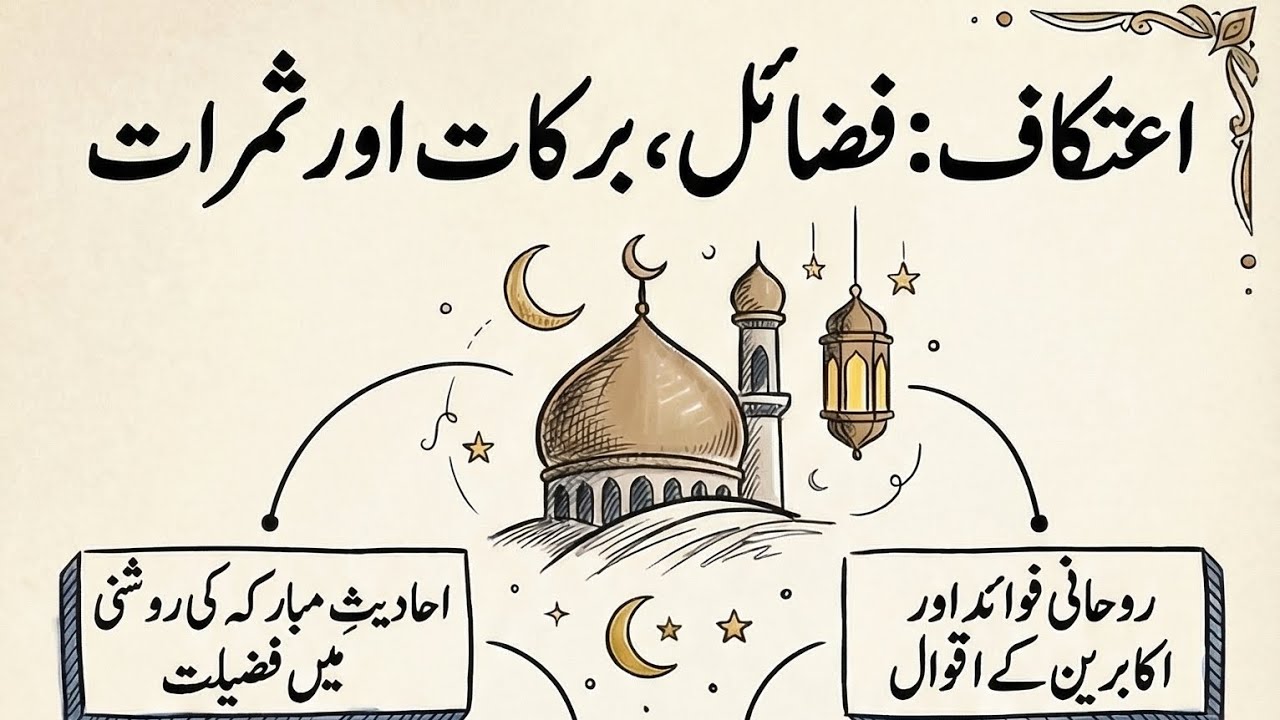 اعتکاف: فضائل، برکات اور ثمرات
روحانی فوائد اور
اکابرین کے اقوال
احادیثِ مبارکہ کی روشنی
میں فضیلت